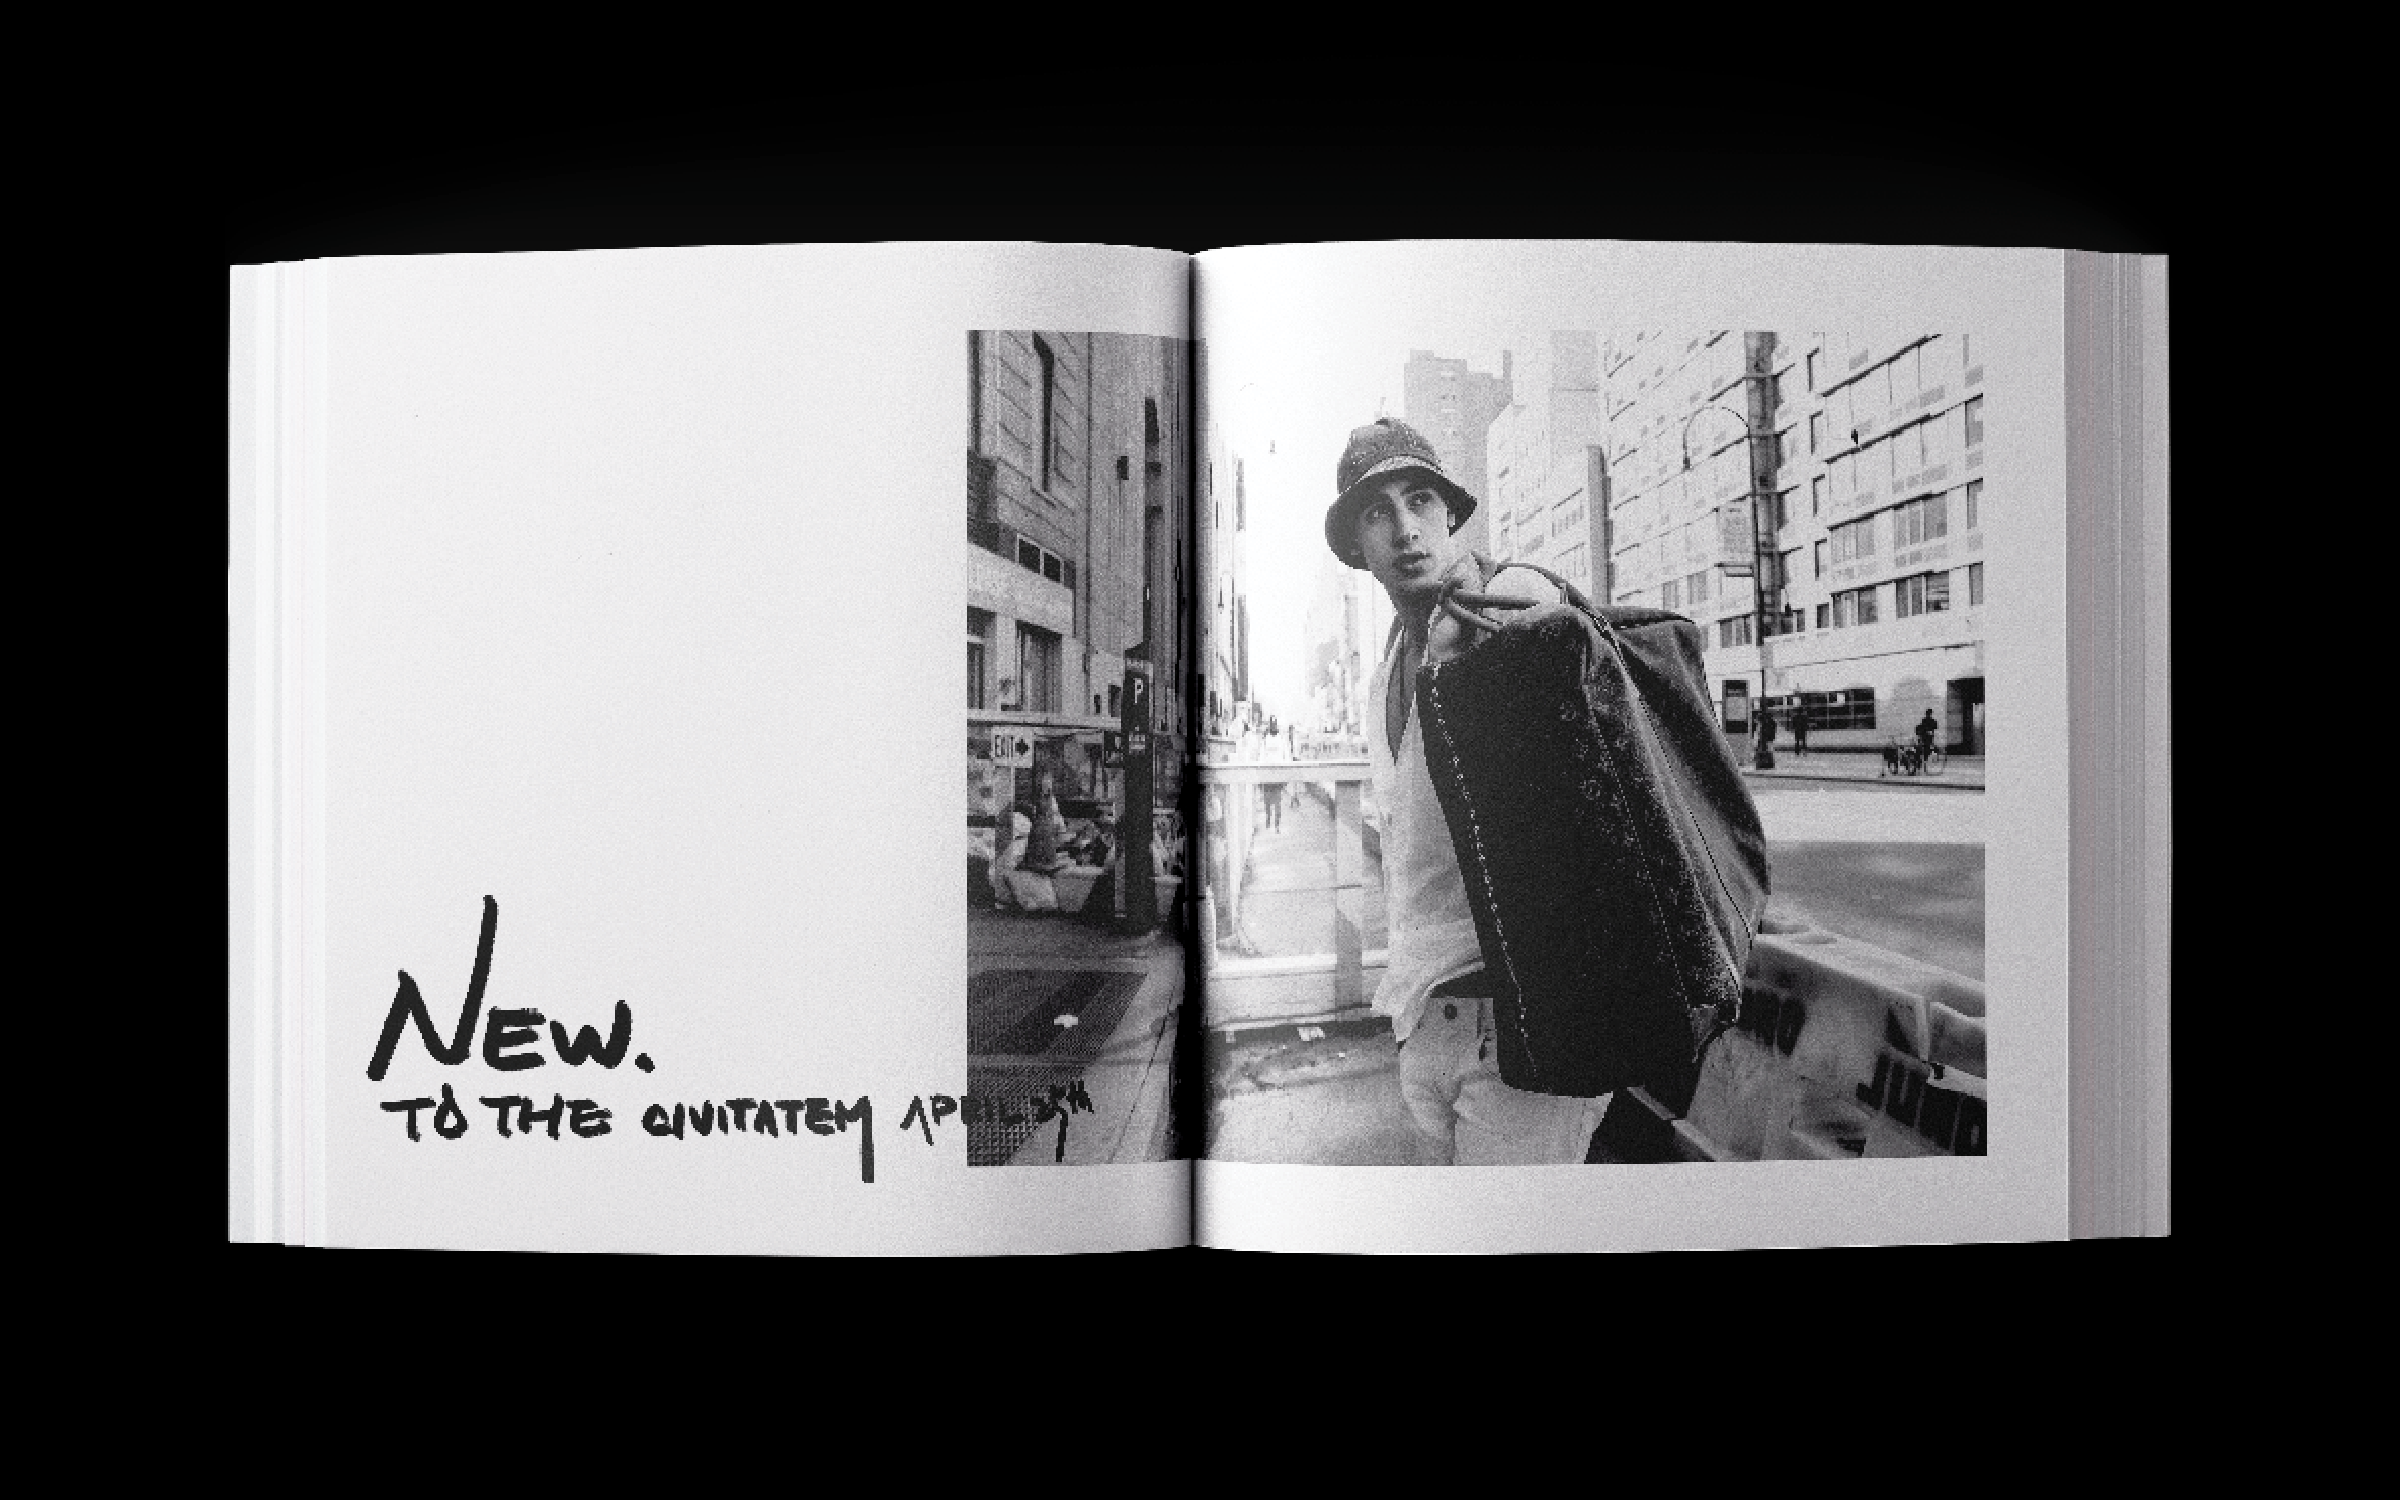 New.
TO THE CIVITATEM APRIL 25TH
EXIT
P